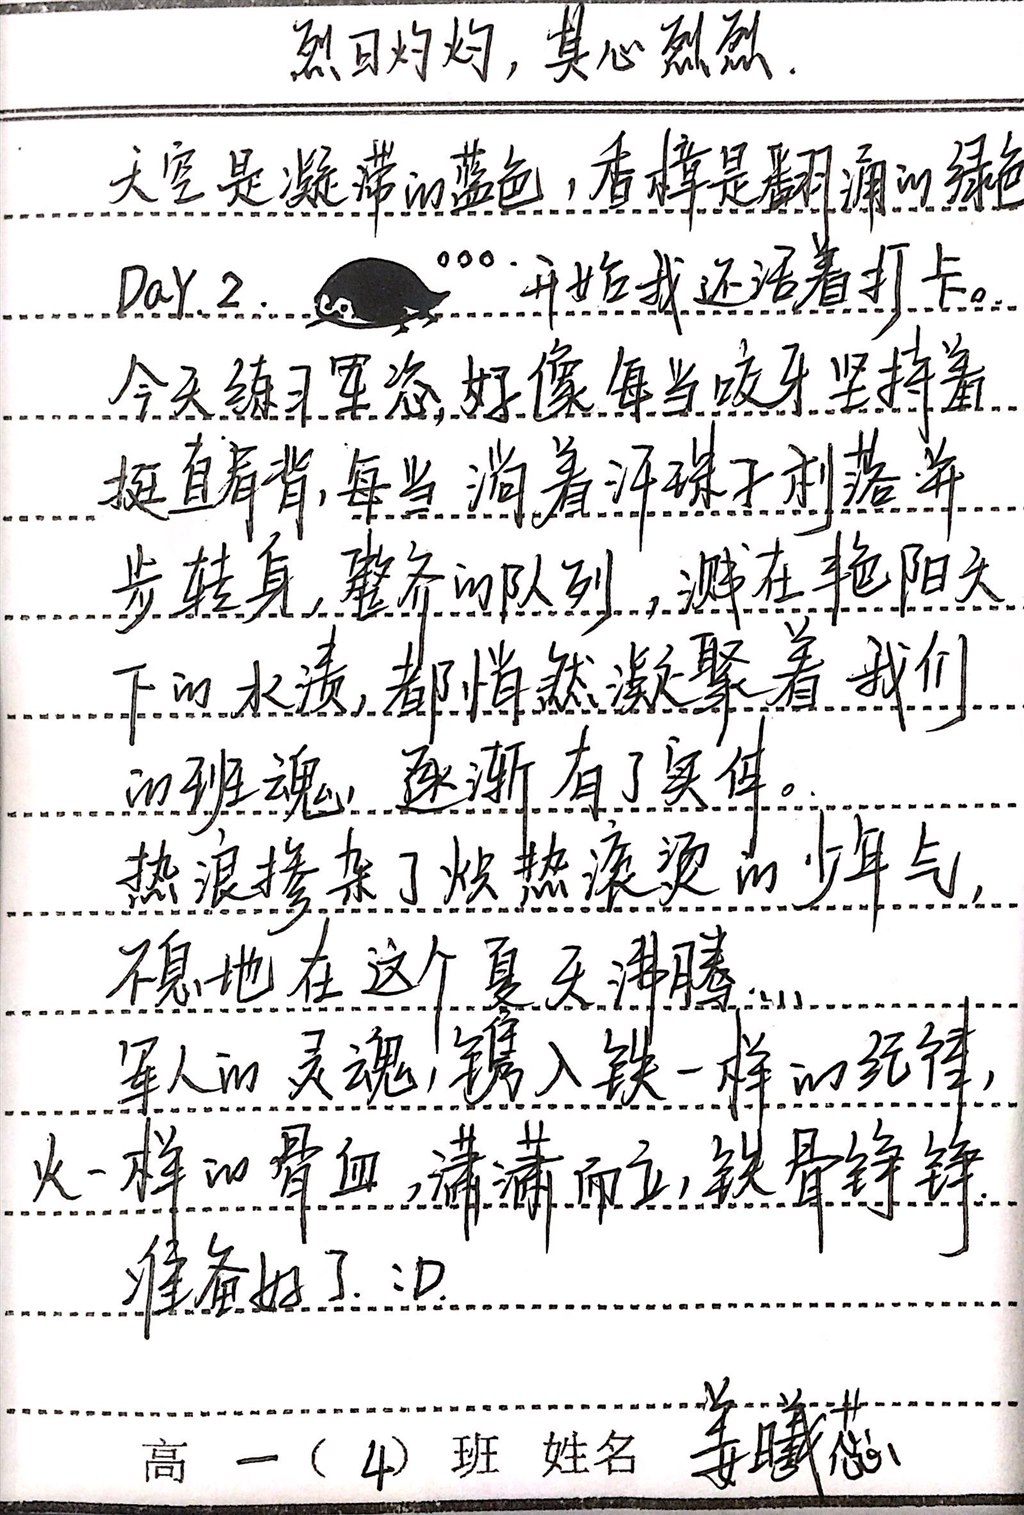 烈日灼灼，其心烈烈.
天空是凝滞的蓝色，香樟是翻涌的绿色
DaY.2. 。。。. 开始我还活着打卡。
今天练习军姿,好像每当咬牙坚持着
挺直脊背,每当淌着汗珠子利落并
步转身,整齐的队列,溅在艳阳天
下的水渍,都悄然凝聚着我们
的班魂,逐渐有了实体。
热浪掺杂了炽热滚烫的少年气,
不息地在这个夏天沸腾.....
军人的灵魂,镌入铁一样的纪律,
火一样的骨血,潇潇而立,铁骨铮铮.
准备好了.:D.
高一(4)班 姓名 姜曦蕊